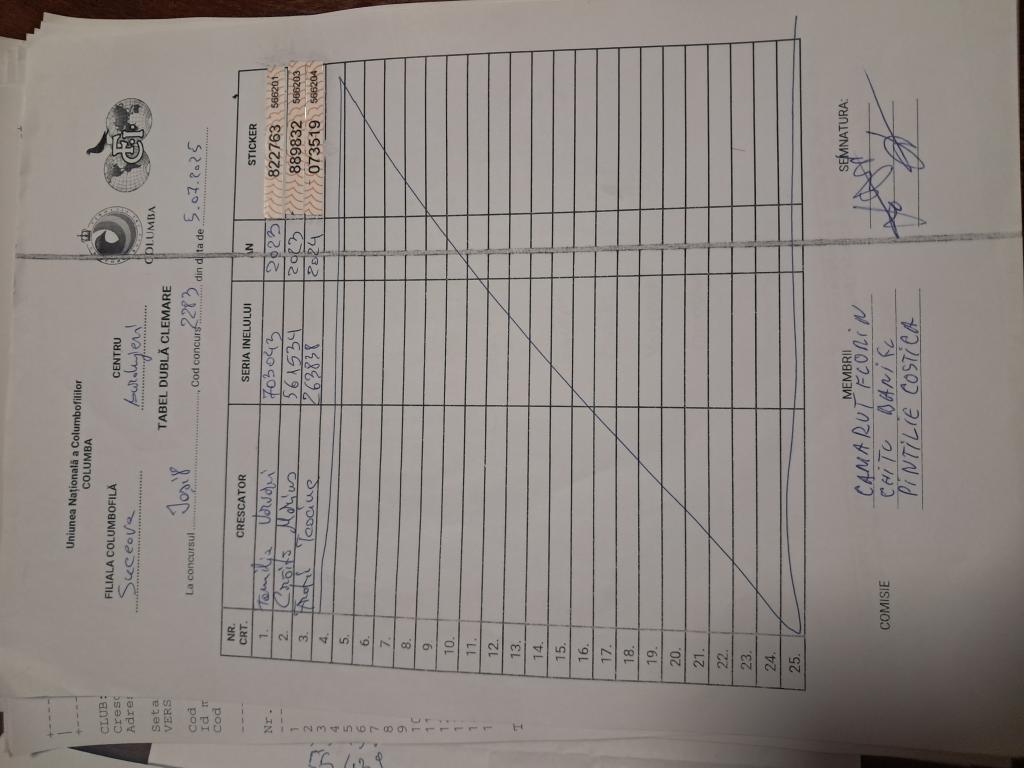 Uniunea Națională a Columbofililor
COLUMBA
COLUMBA
FILIALA COLUMBOFILĂ
CENTRU
Suceava
TABEL DUBLĂ CLEMARE
La concursul Josip, Cod concurs 2283 din data de 5.07.2025
NR. CRT. CRESCATOR SERIA INELULUI AN STICKER
1. Familia 703043 2023 822763 566201
2. Marius 561534 2023 889832 566203
3. 263838 2024 073519 566204
4.
5.
6.
7.
8.
9.
10.
11.
12.
13.
14.
15.
16.
17.
18.
19.
20.
21.
22.
23.
24.
25.
COMISIE
MEMBRII
SEMNATURA:
CAMARUT FLORIN
CHITU
PINTILIE COSTICA
CLUB:
Seta
VERS
Cod
Cod
Nr.
1
2
3
4
5
6
7
8
9